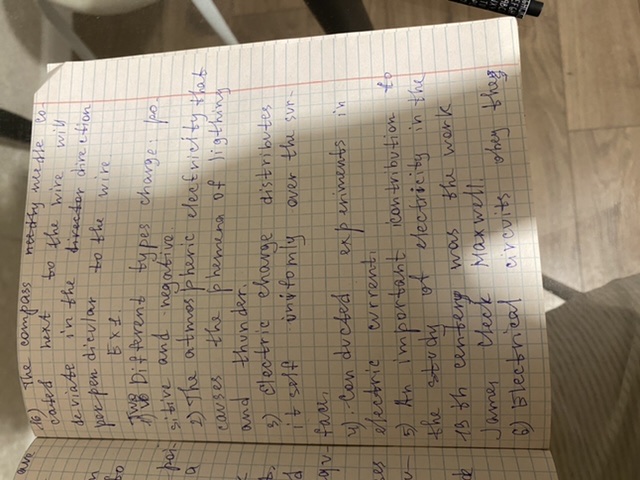 16) The compass needle lo-
cated next to the wire will
deviate in the direction
perpendicular to the wire
Ex 1.
1) Different types charge po-
sitive and negative.
2) The atmospheric electricity that
causes the phemena of ligthing
and thunder.
3) Electric change distributes
it self uniformly over the sur-
face.
4) Conducted experiments in
electric current.
5) An important contribution to
the study of electricity in the
19 th centery was the work
James Clerk Maxwell.
6) Electrical circuits obey the